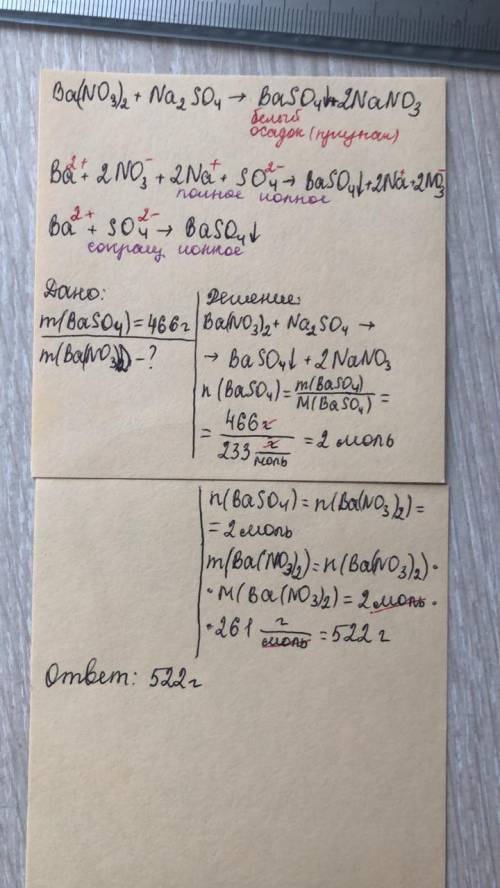 Ba(NO₃)₂ + Na₂SO₄ → BaSO₄↓+2NaNO₃
белый
осадок (признак)
Ba²⁺ + 2NO₃⁻ + 2Na⁺ + SO₄²⁻ → BaSO₄↓+2Na⁺+2NO₃⁻
полное ионное
Ba²⁺ + SO₄²⁻ → BaSO₄↓
сокращ ионное
Дано:
m(BaSO₄)=466г
m(Ba(NO₃)₂) – ?
Решение:
Ba(NO₃)₂ + Na₂SO₄ →
→ BaSO₄↓ + 2NaNO₃
n(BaSO₄) = m(BaSO₄)/M(BaSO₄) =
= 466 г/233 г/моль = 2 моль
n(BaSO₄) = n(Ba(NO₃)₂) =
= 2 моль
m(Ba(NO₃)₂) = n(Ba(NO₃)₂) ·
· M(Ba(NO₃)₂) = 2 моль ·
· 261 г/моль = 522 г
Ответ: 522 г